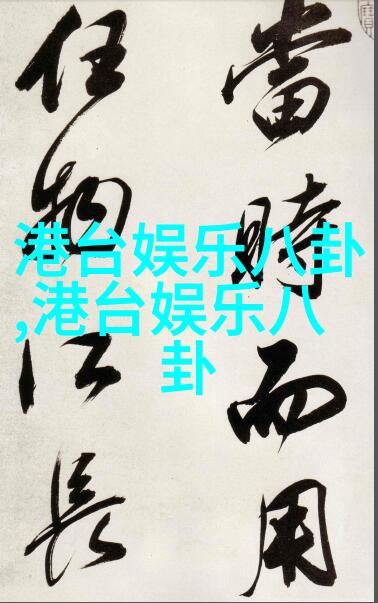 當時而用
任物以長
港台娱乐八卦
,港台娱乐八
卦